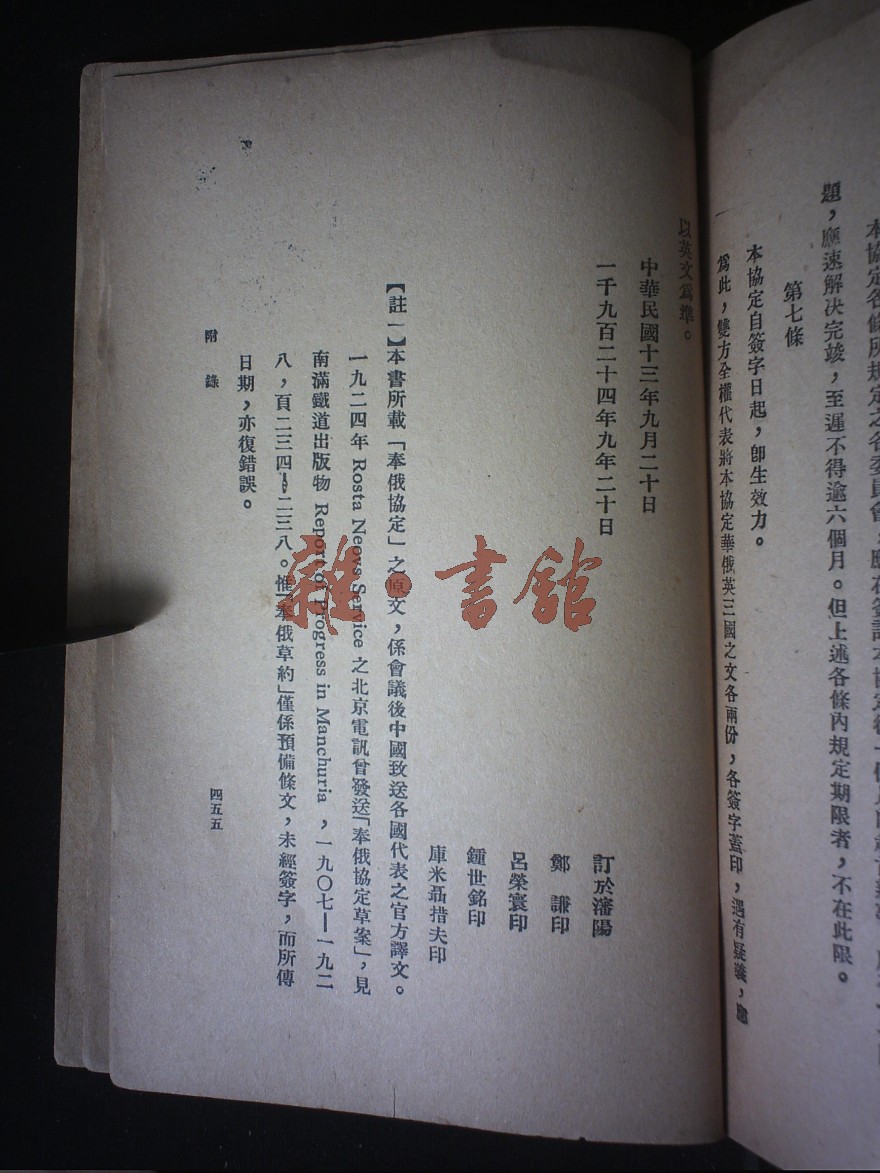 題，應速解決完竣，至遲不得逾六個月。但上述各條內規定期限者，不在此限。
第七條
本協定自簽字日起，卽生效力。
爲此，雙方全權代表將本協定華俄英三國之文各兩份，各簽字蓋印，遇有疑義，應
以英文爲準。
中華民國十三年九月二十日
一千九百二十四年九年二十日
訂於瀋陽
鄭　謙印
呂榮寰印
鍾世銘印
庫米聶措夫印
【註一】本書所載「奉俄協定」之原文，係會議後中國致送各國代表之官方譯文。
一九二四年 Rosta Neovs Service 之北京電訊曾發送「奉俄協定草案」，見
南滿鐵道出版物 Report of Progress in Manchuria ，一九〇七—一九二
八，頁二三四 二三八。惟「奉俄草約」僅係預備條文，未經簽字，而所傳
日期，亦復錯誤。
附錄
四五五
雜·書館